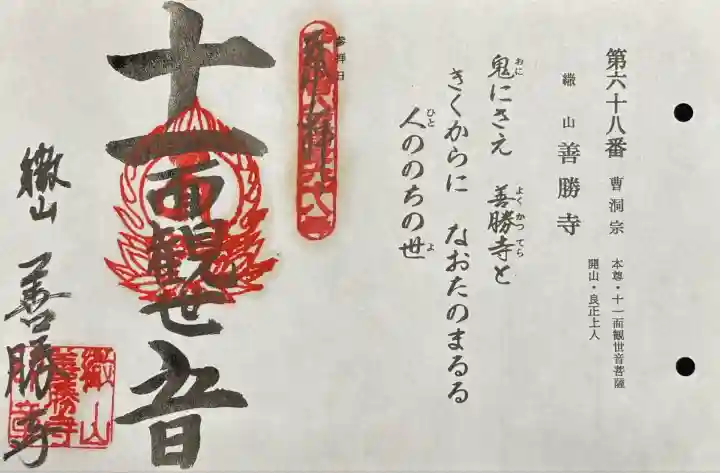 第六十八番 曹洞宗 本尊・十一面観世音菩薩
開山・良正上人
繖山 善勝寺
鬼にさえ 善勝寺と
おに よくかつてら
きくからに なおたのまるる
人ののちの世
ひと よ
参拝日
十一面観世音
繖山 善勝寺
繖山
善勝寺